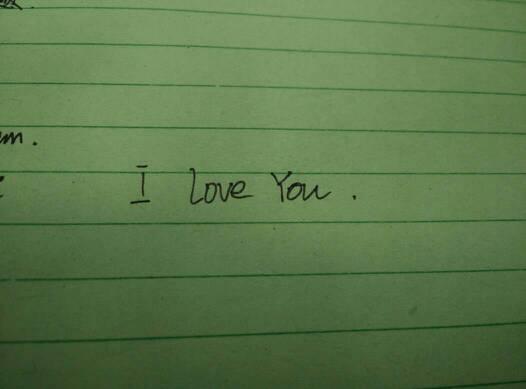 um.
I Love You.